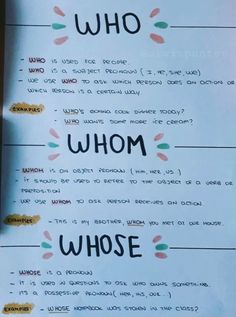 WHO
- WHO IS USED FOR PEOPLE.
- WHO IS A SUBJECT PRONOUN ( I, HE, SHE, WE)
- WE USE WHO TO ASK WHICH PERSON DOES AN ACTION OR
WHICH PERSON IS A CERTAIN WAY.
EXAMPLES
- WHO'S GONNA COOK DINNER TODAY?
- WHO WANTS SOME MORE ICE CREAM?
WHOM
- WHOM IS AN OBJECT PRONOUN ( HIM, HER, US )
- IT SHOULD BE USED TO REFER TO THE OBJECT OF A VERB OR
PREPOSITION
- WE USE WHOM TO ASK PERSON RECEIVES AN ACTION.
EXAMPLES
- THIS IS MY BROTHER, WHOM YOU MET AT OUR HOUSE.
WHOSE
- WHOSE IS A PRONOUN
- IT IS USED IN QUESTIONS TO ASK WHO OWNS SOMETHING.
- IT'S A POSSESSIVE PRONOUN ( HER, HIS, OUR...)
EXAMPLES
- WHOSE NOTEBOOK WAS STOLEN IN THE CLASS?